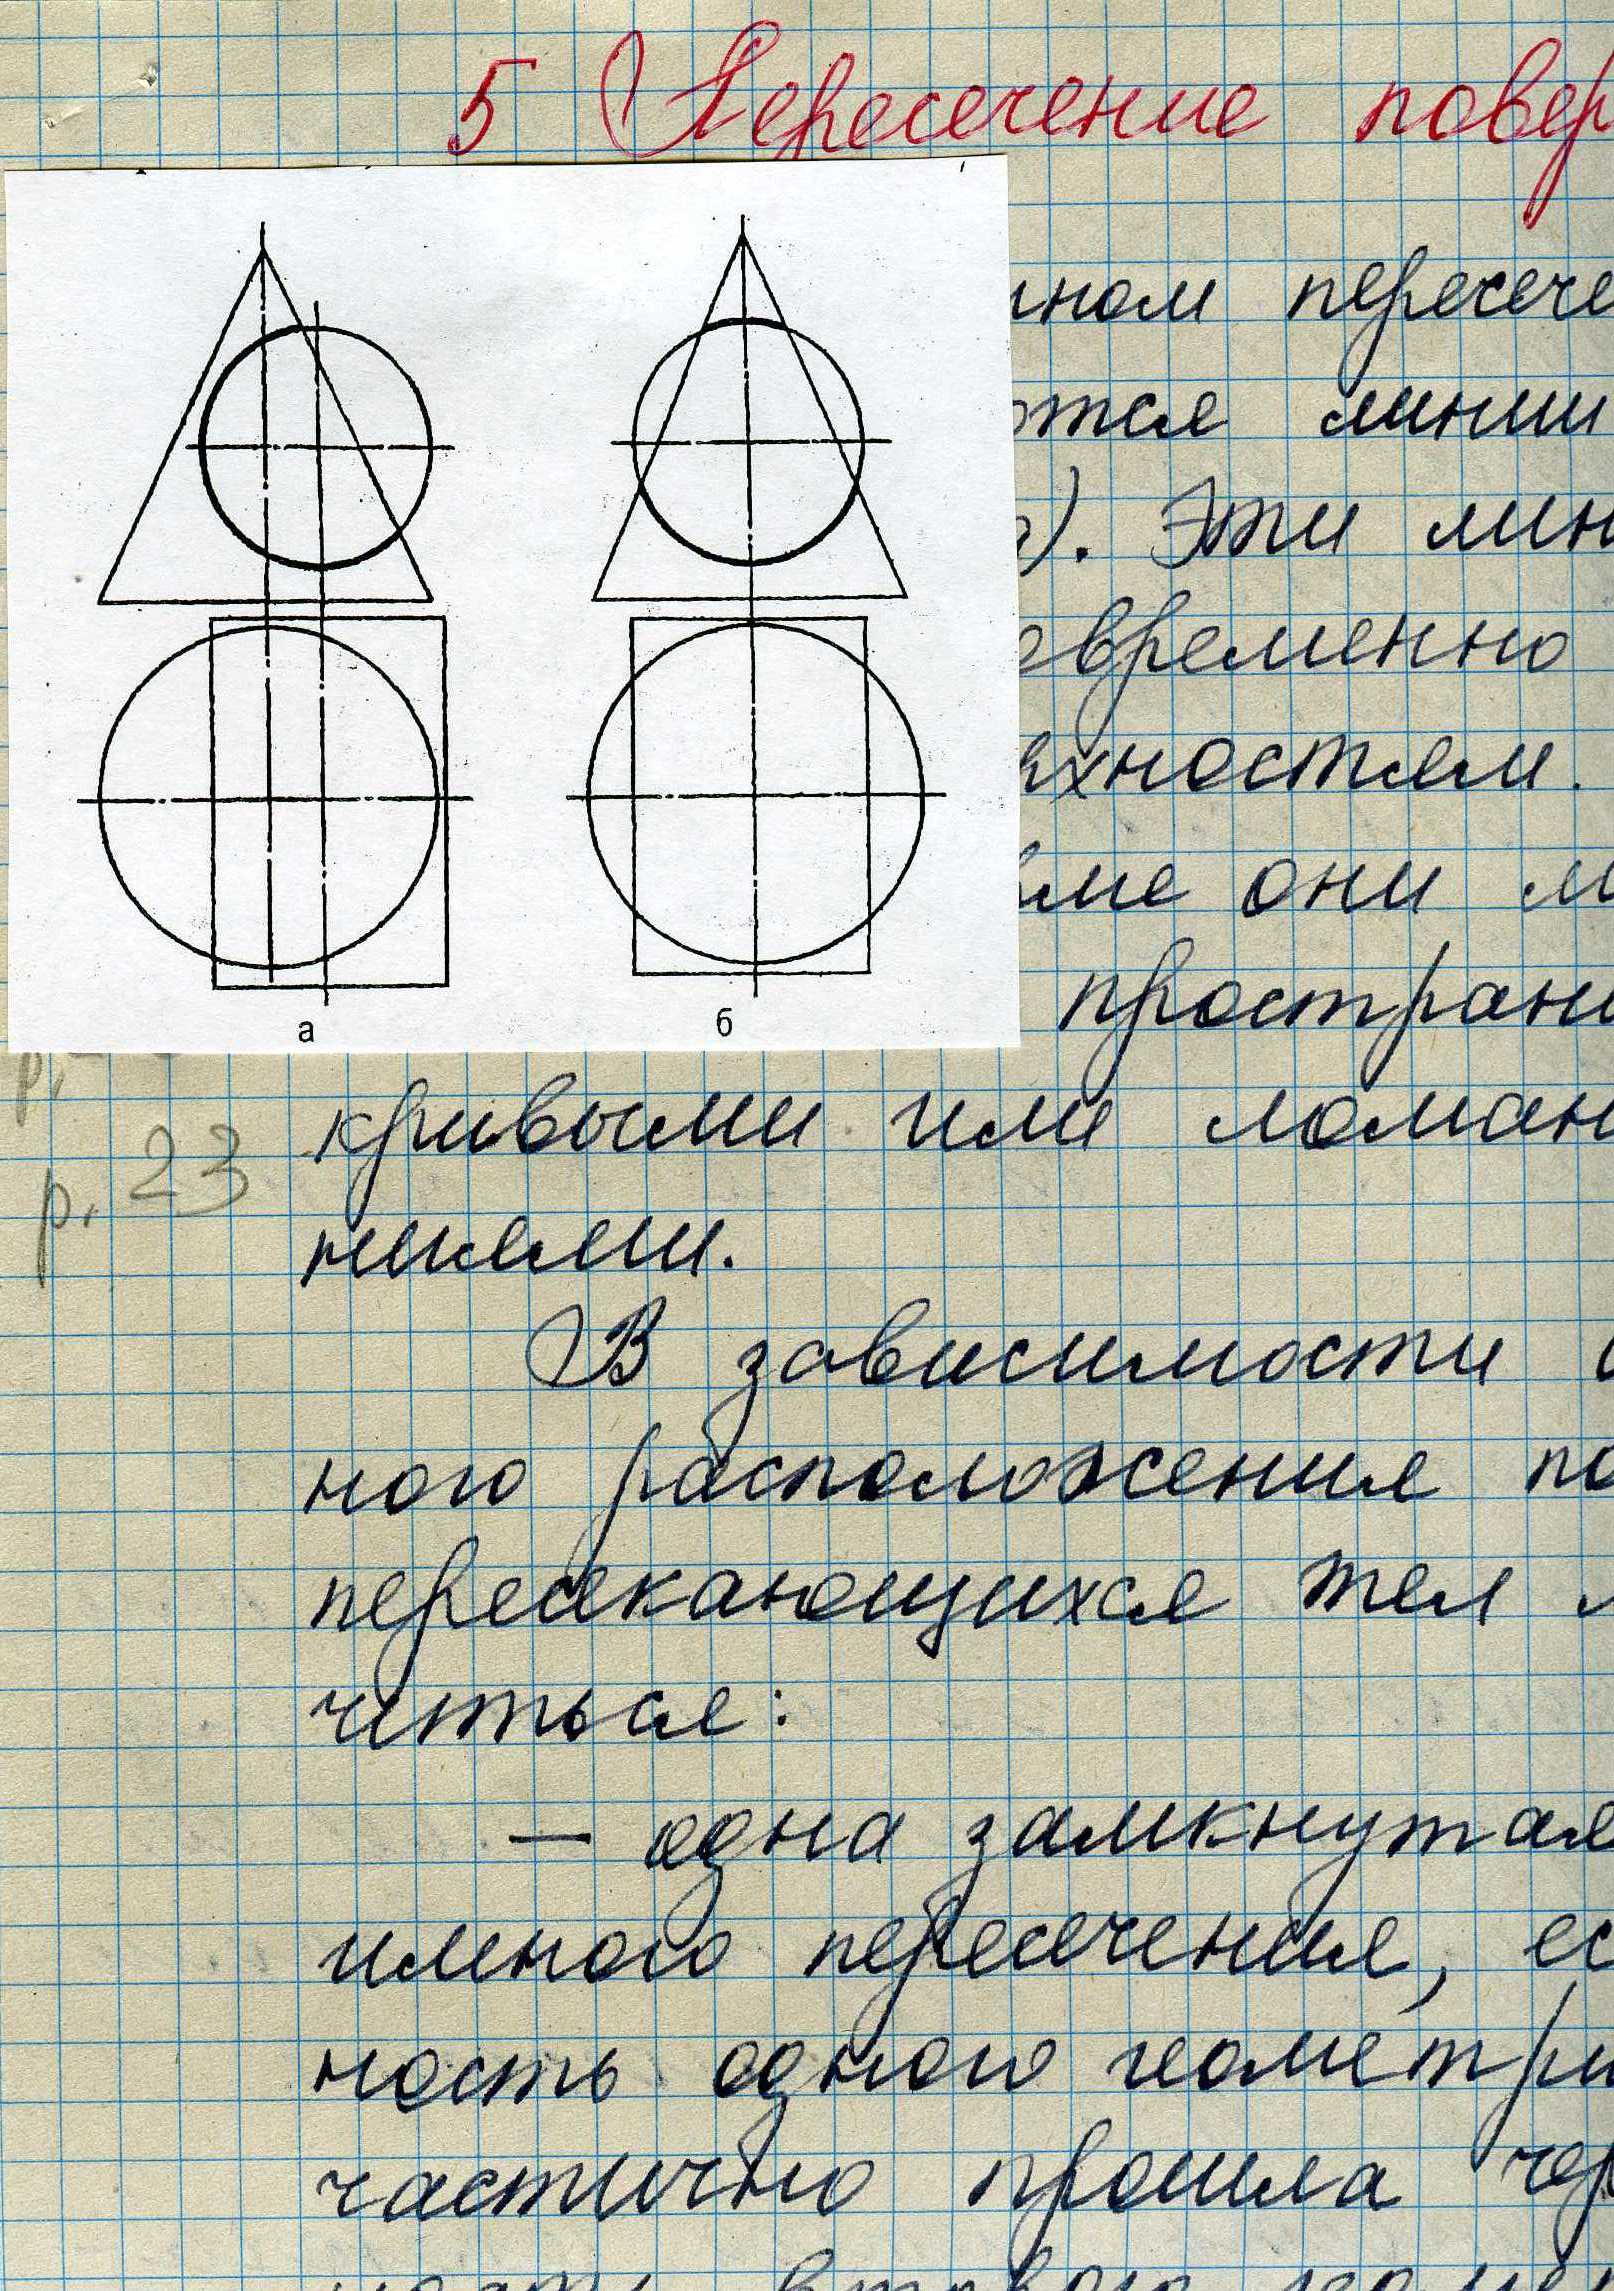 5 Пересечение повер
ном пересече
ются линии
). Эти лин
временно
хностям.
ме они м
простран
а
б
р.
кривыми или ломан
р. 23
ниями.
В зависимости
ного расположения по
пересекающихся тел
читься:
— одна замкнутая
имного пересечения, ес
ность одного геометри
частично прошла чер